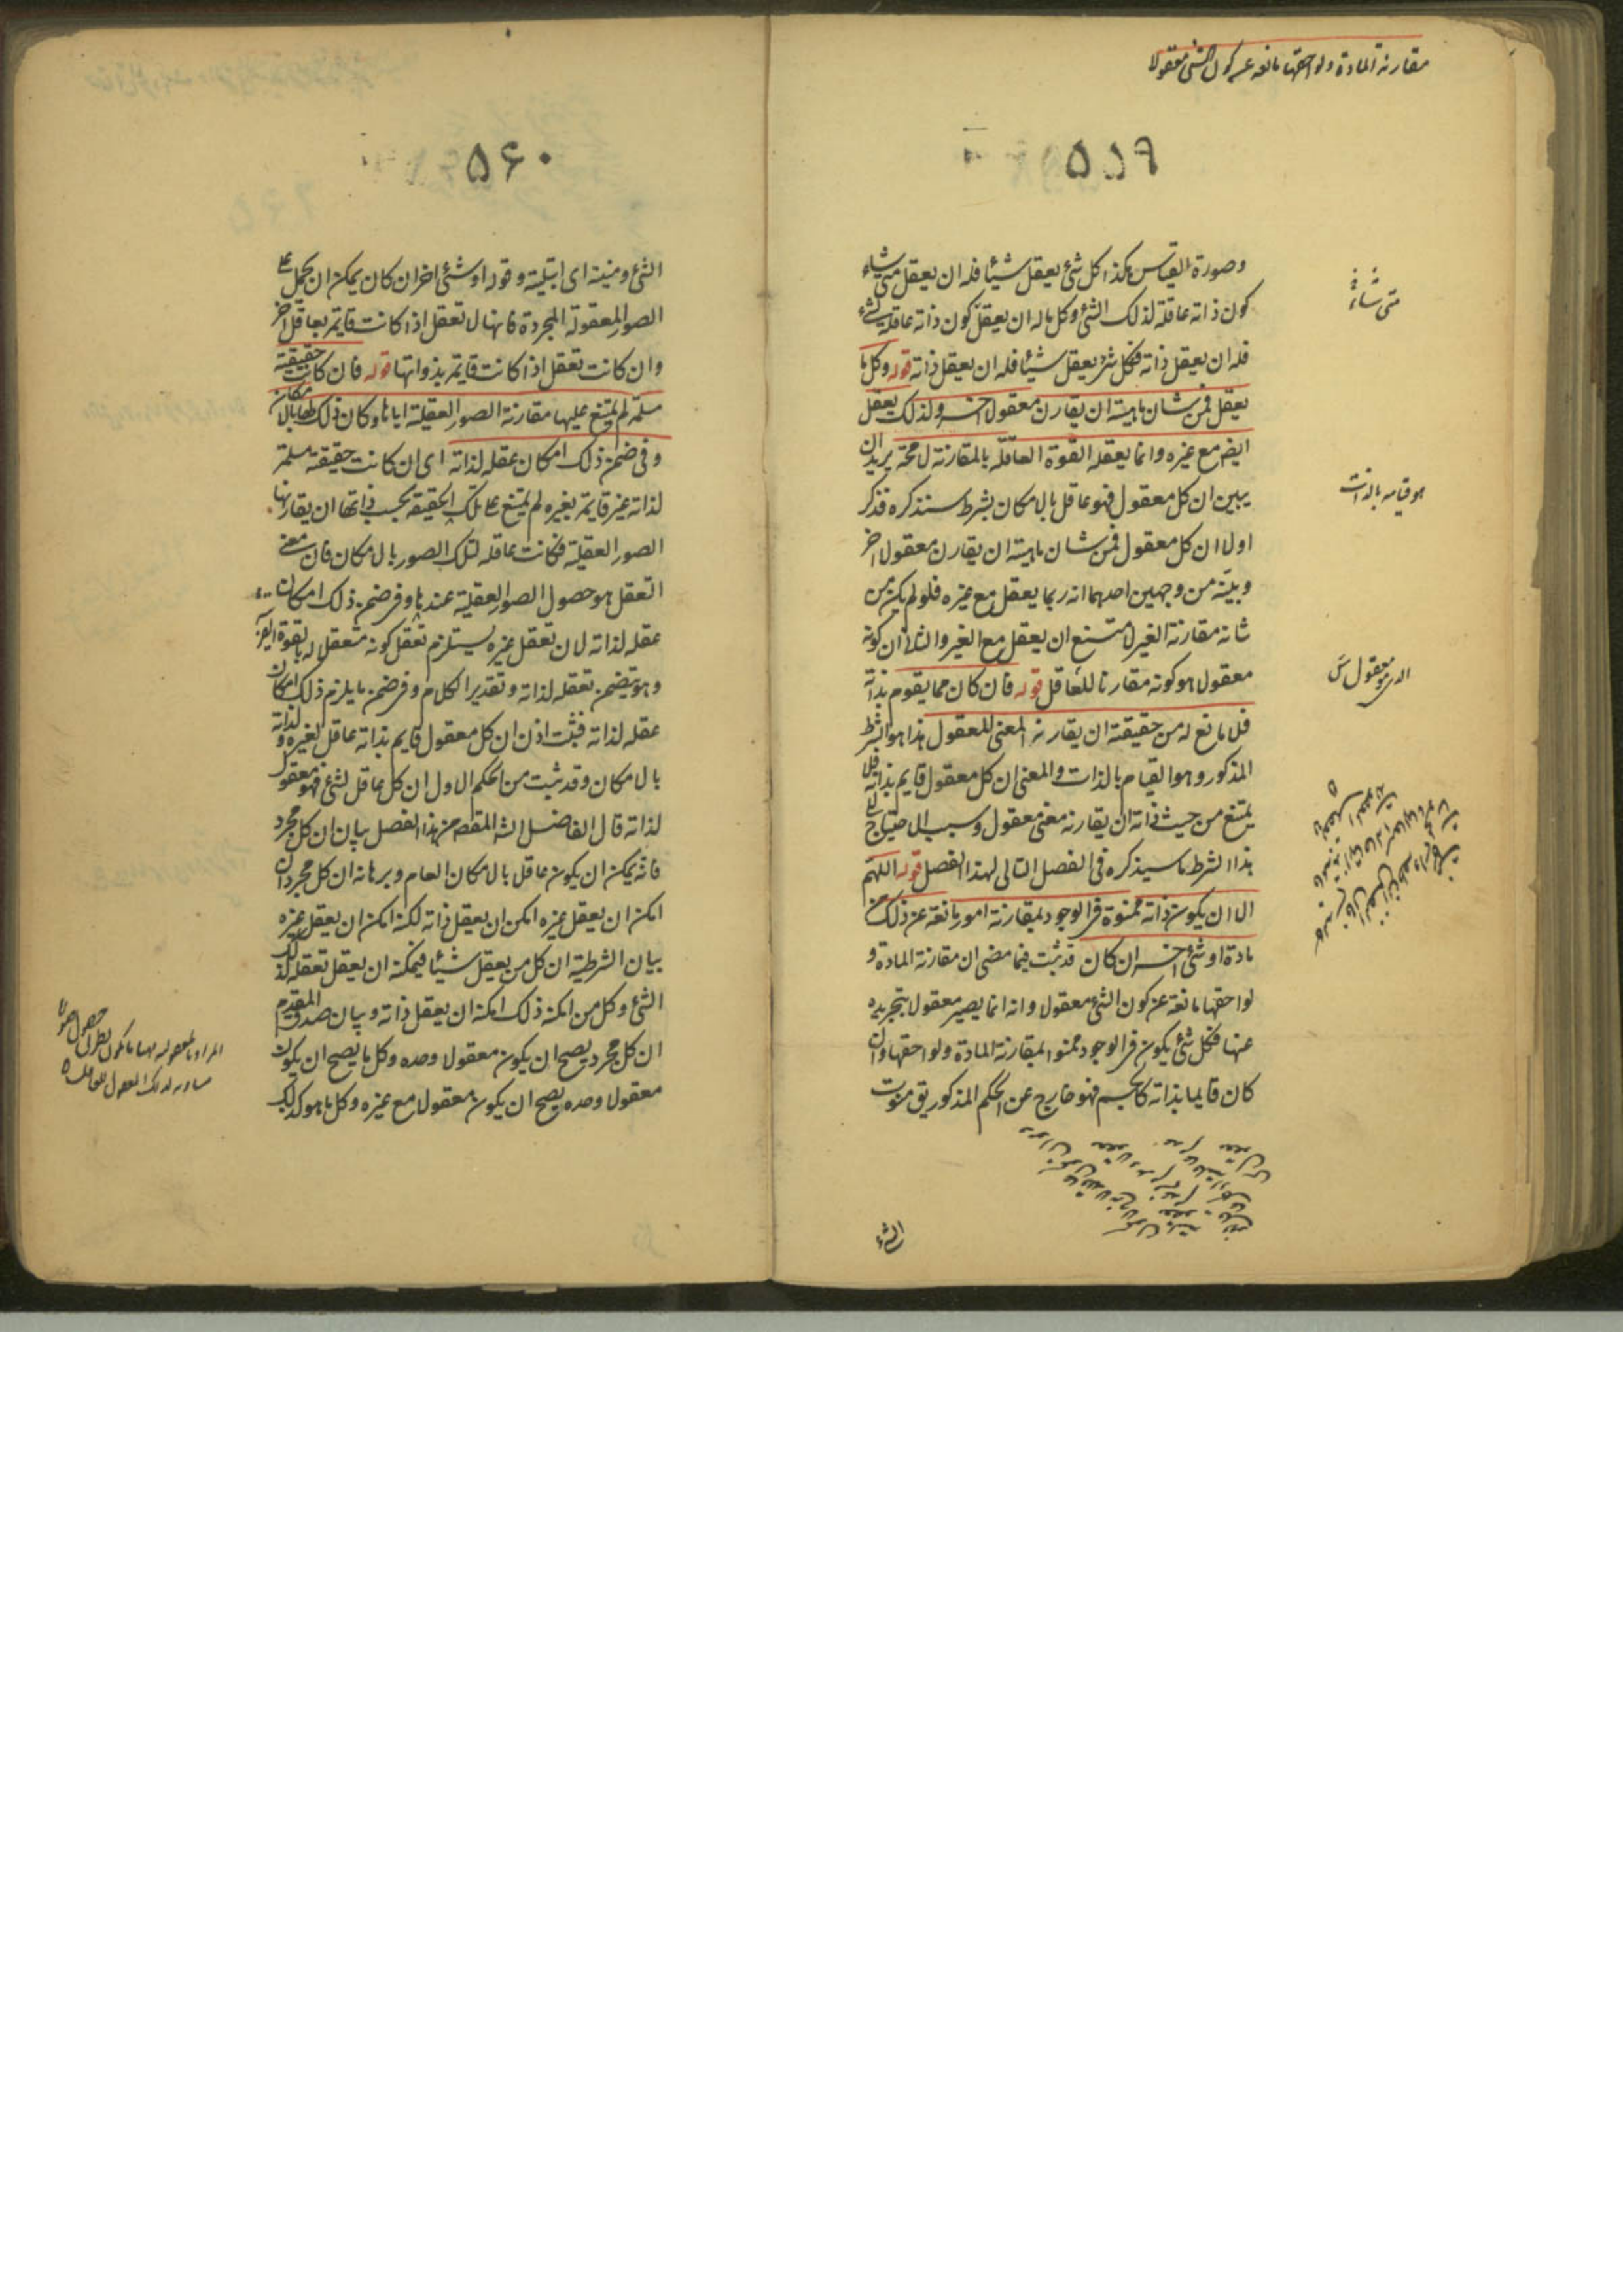 مقارنة المادة ولواحقها مانعة عن كون الشئ معقولا
۵۵۹
وصورة القياس هكذا كل شئ يعقل شيئا فله ان يعقل متى شاء
كون ذاته عاقلة لذلك الشئ وكل ماله ان يعقل كون ذاته عاقلة لشئ
فله ان يعقل ذاته فكل شئ يعقل شيئا فله ان يعقل ذاته قوله وكل ما
يعقل فمن شان ماهيته ان يقارن معقولا اخر ولذلك يعقل
ايضا مع غيره وانما يعقله القوة العاقلة بالمقارنة لا محة يريد ان
يبين ان كل معقول فهو عاقل بالامكان بشرط سنذكره فذكر
اولا ان كل معقول فمن شان ماهيته ان يقارن معقولا اخر
وبينه من وجهين احدهما انه ربما يعقل مع غيره فلو لم يكن من
شانه مقارنة الغير لامتنع ان يعقل مع الغير والثانى ان كونه
معقولا هو كونه مقارنا للعاقل قوله فان كان مما يقوم بذاته
فلا مانع له من حقيقته ان يقارنه المعنى المعقول هذا هو الشرط
المذكور وهو القيام بالذات والمعنى ان كل معقول قايم بذاته فلا
يمتنع من حيث ذاته ان يقارنه معنى معقول وسبب الاحتياج الى
هذا الشرط ما سيذكره فى الفصل التالى لهذا الفصل قوله اللهم
الا ان يكون ذاته ممنوة فى الوجود بمقارنة امور مانعة عن ذلك من
مادة او شئ اخر ان كان قد ثبت فيما مضى ان مقارنة المادة و
لواحقها مانعة عن كون الشئ معقولا وانه انما يصير معقولا بتجريده
عنها فكل شئ يكون فى الوجود ممنوا بمقارنة المادة ولواحقها وان
كان قايما بذاته كالجسم فهو خارج عن الحكم المذكور يق منوت
الشئ
متى شاء
هو قيامه بالذات
الذى هو معقول س
۵۶۰
الشئ ومنيته اى ابتليته وقوله او شئ اخر ان كان يمكن ان يحمل على
الصور المعقولة المجردة فانها لا تعقل اذا كانت قايمة بعاقل اخر
وان كانت تعقل اذا كانت قايمة بذواتها قوله فان كانت حقيقته
مسلمة لم يمتنع عليها مقارنة الصور العقلية اياها وكان ذلك لها بالامكان
وفى ضمن ذلك امكان عقله لذاته اى ان كانت حقيقته مسلمة
لذاته غير قايمة بغيره لم يمتنع على تلك الحقيقة بحسب ذاتها ان يقارنها
الصور العقلية فكانت عاقلة لتلك الصور بالامكان فان معنى
التعقل هو حصول الصور العقلية عندها وفى ضمن ذلك امكان
عقله لذاته لان تعقل غيره يستلزم تعقل كونه متعقلا له بالقوة القريبة
وهو يتضمن تعقله لذاته وتقدير الكلام وفى ضمن ما يلزم ذلك امكان
عقله لذاته فثبت اذن ان كل معقول قايم بذاته عاقل لغيره ولذاته
بالامكان وقد ثبت من الحكم الاول ان كل عاقل لشئ فهو معقول
لذاته قال الفاضل الشارح المقصد من هذا الفصل بيان ان كل مجرد
فانه يمكن ان يكون عاقلا بالامكان العام وبرهانه ان كل مجرد ان
امكن ان يعقل غيره امكن ان يعقل ذاته لكنه امكن ان يعقل غيره
بيان الشرطية ان كل من يعقل شيئا فيمكنه ان يعقل تعقله لذلك
الشئ وكل من امكنه ذلك امكنه ان يعقل ذاته وبيان صدق المقدم
ان كل مجرد يصح ان يكون معقولا وحده وكل ما يصح ان يكون
معقولا وحده يصح ان يكون معقولا مع غيره وكل ما هو كذلك